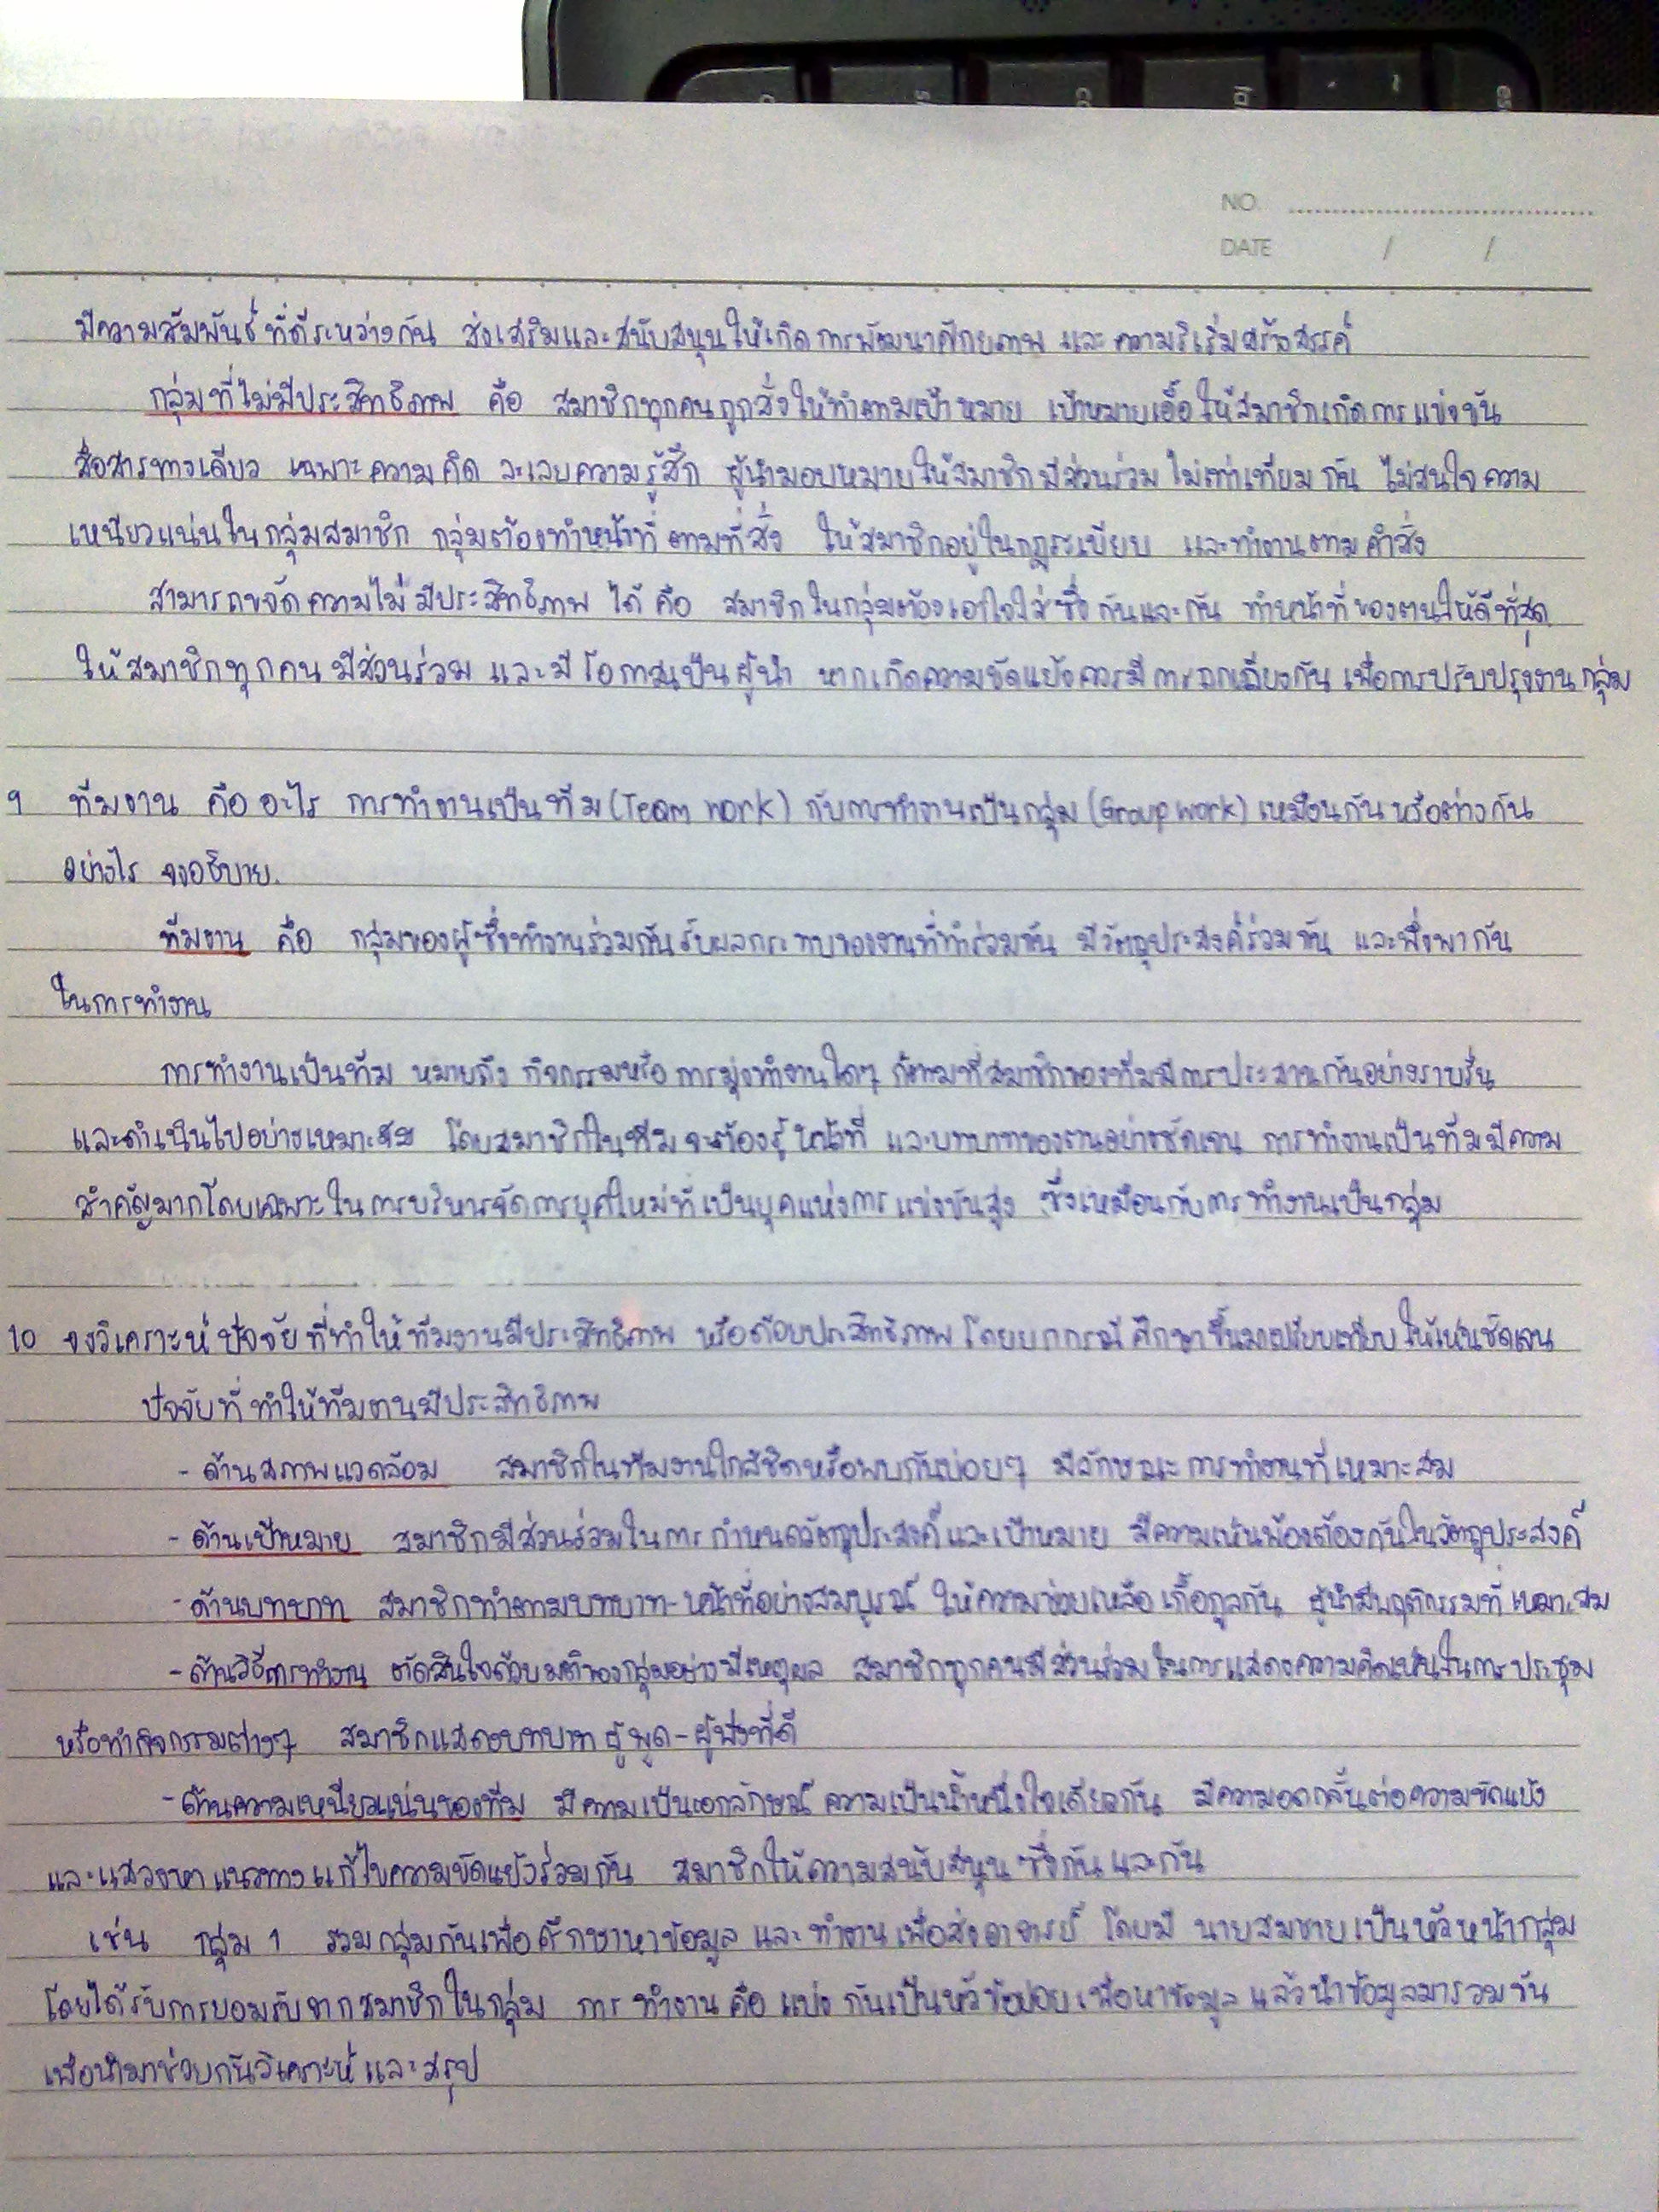 NO.
DATE / /
มีความสัมพันธ์ที่ดีระหว่างกัน ส่งเสริมและสนับสนุนให้เกิดการพัฒนาศักยภาพ และความริเริ่มสร้างสรรค์
กลุ่มที่ไม่มีประสิทธิภาพ คือ สมาชิกทุกคนถูกสั่งให้ทำตามเป้าหมาย เป้าหมายเอื้อให้สมาชิกเกิดการแข่งขัน
สื่อสารทางเดียว เฉพาะความคิด ละเลยความรู้สึก ผู้นำมอบหมายให้สมาชิกมีส่วนร่วมไม่เท่าเทียมกัน ไม่สนใจความ
เหนียวแน่นในกลุ่มสมาชิก กลุ่มต้องทำหน้าที่ตามที่สั่ง ให้สมาชิกอยู่ในกฎระเบียบ และทำงานตามคำสั่ง
สามารถขจัดความไม่มีประสิทธิภาพ ได้ คือ สมาชิกในกลุ่มต้องเอาใจใส่ซึ่งกันและกัน ทำหน้าที่ของตนให้ดีที่สุด
ให้สมาชิกทุกคนมีส่วนร่วม และมีโอกาสเป็นผู้นำ หากเกิดความขัดแย้งควรมีการถกเถียงกัน เพื่อการปรับปรุงงานกลุ่ม
9 ทีมงาน คืออะไร การทำงานเป็นทีม (Team work) กับการทำงานเป็นกลุ่ม (Group work) เหมือนกันหรือต่างกัน
อย่างไร จงอธิบาย.
ทีมงาน คือ กลุ่มของผู้ซึ่งทำงานร่วมกันรับผลกระทบของงานที่ทำร่วมกัน มีวัตถุประสงค์ร่วมกัน และพึ่งพากัน
ในการทำงาน
การทำงานเป็นทีม หมายถึง กิจกรรมหรือการมุ่งทำงานใดๆ ก็ตามที่สมาชิกของทีมมีการประสานกันอย่างราบรื่น
และดำเนินไปอย่างเหมาะสม โดยสมาชิกในทีมจะต้องรู้หน้าที่ และบทบาทของตนอย่างชัดเจน การทำงานเป็นทีมมีความ
สำคัญมากโดยเฉพาะในการบริหารจัดการยุคใหม่ที่เป็นยุคแห่งการแข่งขันสูง ซึ่งเหมือนกับการทำงานเป็นกลุ่ม
10 จงวิเคราะห์ปัจจัยที่ทำให้ทีมงานมีประสิทธิภาพ หรือด้อยประสิทธิภาพ โดยยกกรณีศึกษาขึ้นมาเปรียบเทียบให้เห็นชัดเจน
ปัจจัยที่ทำให้ทีมงานมีประสิทธิภาพ
- ด้านสภาพแวดล้อม สมาชิกในทีมงานใกล้ชิดหรือพบกันบ่อยๆ มีลักษณะการทำงานที่เหมาะสม
- ด้านเป้าหมาย สมาชิกมีส่วนร่วมในการกำหนดวัตถุประสงค์และเป้าหมาย มีความเห็นพ้องต้องกันในวัตถุประสงค์
- ด้านบทบาท สมาชิกทำตามบทบาท-หน้าที่อย่างสมบูรณ์ ให้ความช่วยเหลือเกื้อกูลกัน ผู้นำมีพฤติกรรมที่เหมาะสม
- ด้านวิธีการทำงาน ตัดสินใจด้วยมติของกลุ่มอย่างมีเหตุผล สมาชิกทุกคนมีส่วนร่วมในการแสดงความคิดเห็นในการประชุม
หรือทำกิจกรรมต่างๆ สมาชิกแสดงบทบาทผู้พูด-ผู้ฟังที่ดี
- ด้านความเหนียวแน่นของทีม มีความเป็นเอกลักษณ์ ความเป็นน้ำหนึ่งใจเดียวกัน มีความอดกลั้นต่อความขัดแย้ง
และแสวงหาแนวทางแก้ไขความขัดแย้งร่วมกัน สมาชิกให้ความสนับสนุนซึ่งกันและกัน
เช่น กลุ่ม 1 รวมกลุ่มกันเพื่อศึกษาหาข้อมูล และทำงานเพื่อส่งอาจารย์ โดยมี นายสมชายเป็นหัวหน้ากลุ่ม
โดยได้รับการยอมรับจากสมาชิกในกลุ่ม การทำงานคือ แบ่งกันเป็นหัวข้อย่อยเพื่อหาข้อมูล แล้วนำข้อมูลมารวมกัน
เพื่อนำมาช่วยกันวิเคราะห์และสรุป